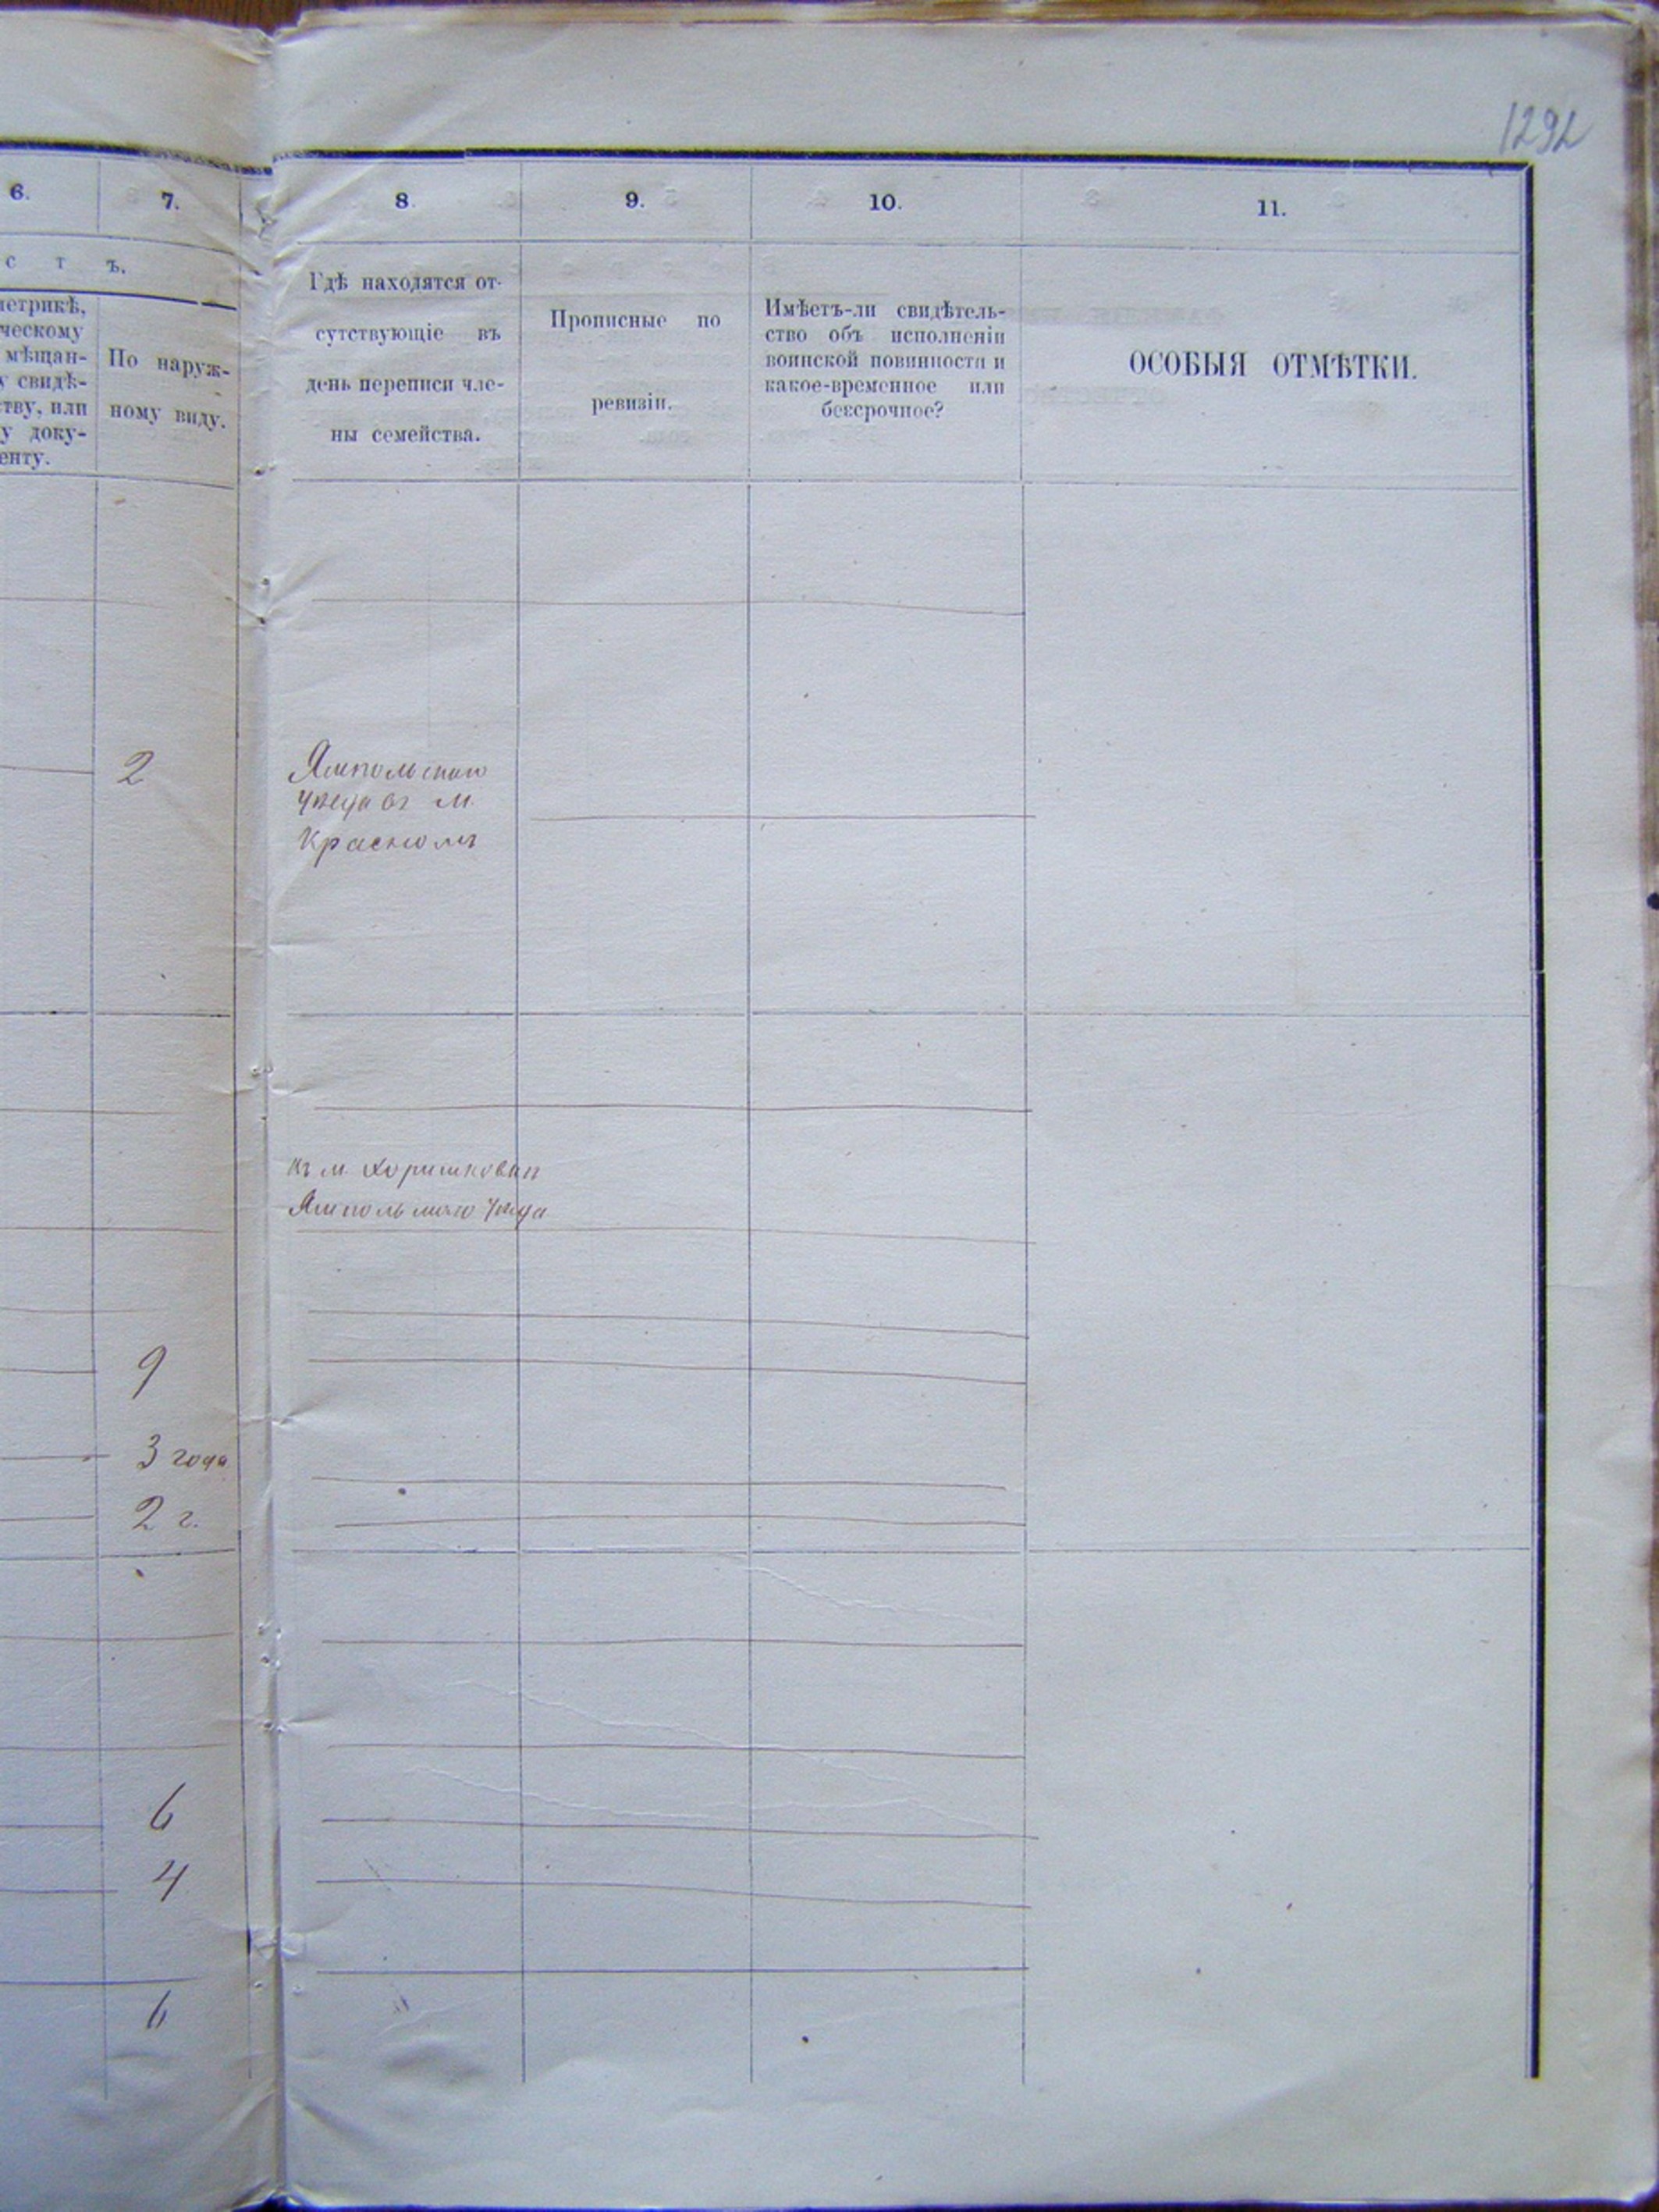 1292
6.
7.
8.
9.
10.
11.
с т ъ.
метрикѣ,
ческому
мѣщан-
у свидѣ-
тву, или
у доку-
енту.
По наруж-
ному виду.
Гдѣ находятся от-
сутствующіе въ
день переписи чле-
ны семейства.
Прописные по
ревизіи.
Имѣетъ-ли свидѣтель-
ство объ исполненіи
воинской повинности и
какое-временное или
безсрочное?
ОСОБЫЯ ОТМѢТКИ.
2
Ямпольскаго
уѣзда въ м.
Красномъ
въ м.
Ямпольскаго уѣзда
9
3 года
2 г.
6
4
6